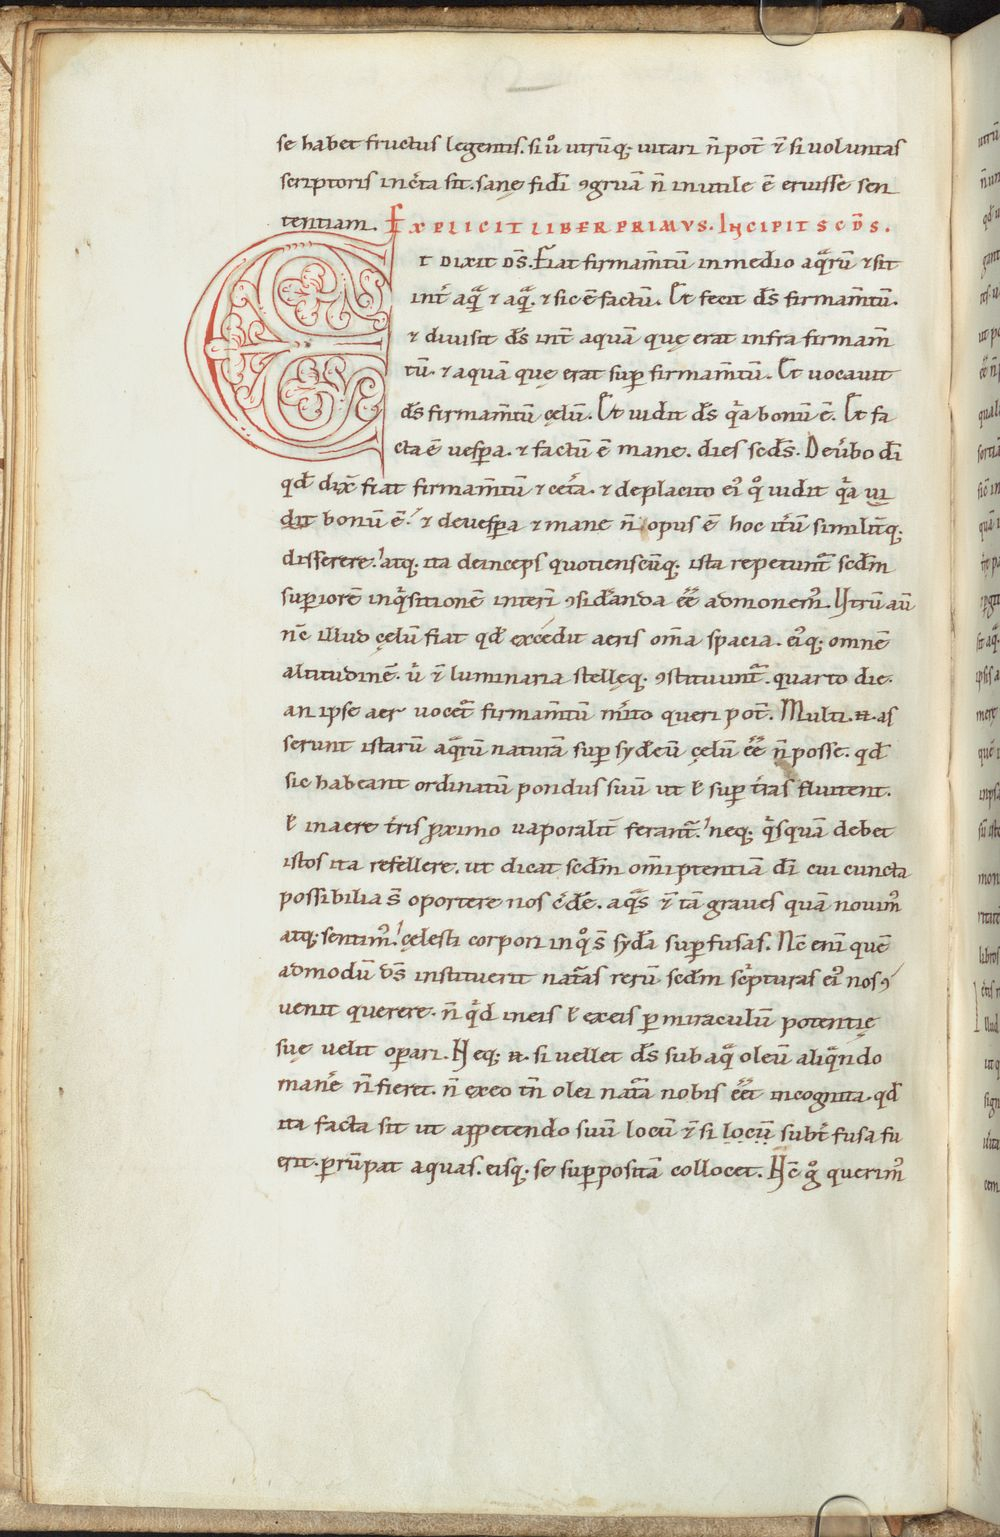 se habet fructus legentis. si u͛o utrūq; uitari n̄ pot̄ ⁊̄ si uoluntas
scriptoris inc͛ta sit. sanę fidī ꝯgruā n̄ inutile ē eruisse sen
tentiam. EXPLICIT LIBER PRIMVS. INCIPIT SCD̄S.
ET DIXIT DS̄. Fiat firmam̄tū in medio aqᷓrū ⁊ sit
int͛ aqᷓ ⁊ aqᷓ. ⁊ sic ē factū. Et fecit ds̄ firmam̄tū.
⁊ diuisit ds̄ int̄ aquā quę erat infra firmam̄
tū. ⁊ aquā quę erat sup̄ firmam̄tū. Et uocauit
ds̄ firmam̄tū cęlū. Et uidit ds̄ qᷓa bonū ē. Et fa
cta ē uesp̄a. ⁊ factū ē mane. dies scd̄s. De u͛bo dī
qd̄ dix̄ fiat firmam̄tū ⁊ cet͛a. ⁊ de placito ei᷒ qͦ uidit qᷓa ui
dit bonū ē. ⁊ de uesp̄a ⁊ mane n̄ opus ē hoc it͛ū similit̄q;
disserere. atq; ita deinceps quotienscūq; ista repetunt᷑ scd̄m
sup̄iorē inqͥsitionē interī ꝯsid͛anda ēē admonem᷒. Utrū aū
nc̄ illud cęlū fiat qd̄ excedit aeris om̄a spacia. ei᷒q; omnē
altitudinē. u͛ ⁊̄ luminaria stellęq; ꝯstituunt᷑. quarto die.
an ipse aer uocet᷑ firmam̄tū m͛ito queri pot̄. Multi .n̄. as
serunt istarū aqᷓrū naturā sup̄ sydeū cęlū ēē n̄ posse. qd̄
sic habeant ordinatū pondus suū ut ł sup̄ t͛ras fluitent.
ł in aere t͛ris ꝓximo uaporalit̄ ferant᷑. neq; qͥsquā debet
istos ita refellere. ut dicat scd̄m om̄iptentiā dī cui cuncta
possibilia s̄ oportere nos c͛d͛e. aqᷓs ⁊̄ tā graues quā nouim᷒
atq; sentim᷒. cęlesti corpori in qͦ s̄ syd͛a sup̄fusas. Nc̄ enī quē
admodū ds̄ instituerit nat᷑as rerū scd̄m sc͛pturas ei᷒ nos ꝯ
uenit querere. n̄ qͥd in eis ł ex eis ꝑ miraculū potentię
suę uelit op̄ari. Neq; .n̄. si uellet ds̄ sub aqᷓ oleū aliqᷓndo
man͛e n̄ fieret. n̄ ex eo tn̄ olei nat᷑a nobis ēēt incognita. qd̄
ita facta sit ut appetendo suū locū ⁊̄ si locū subt͛ fusa fu
erit. ꝑrūpat aquas. eisq; se sup̄positā collocet. Nc̄ gͦ querim᷒